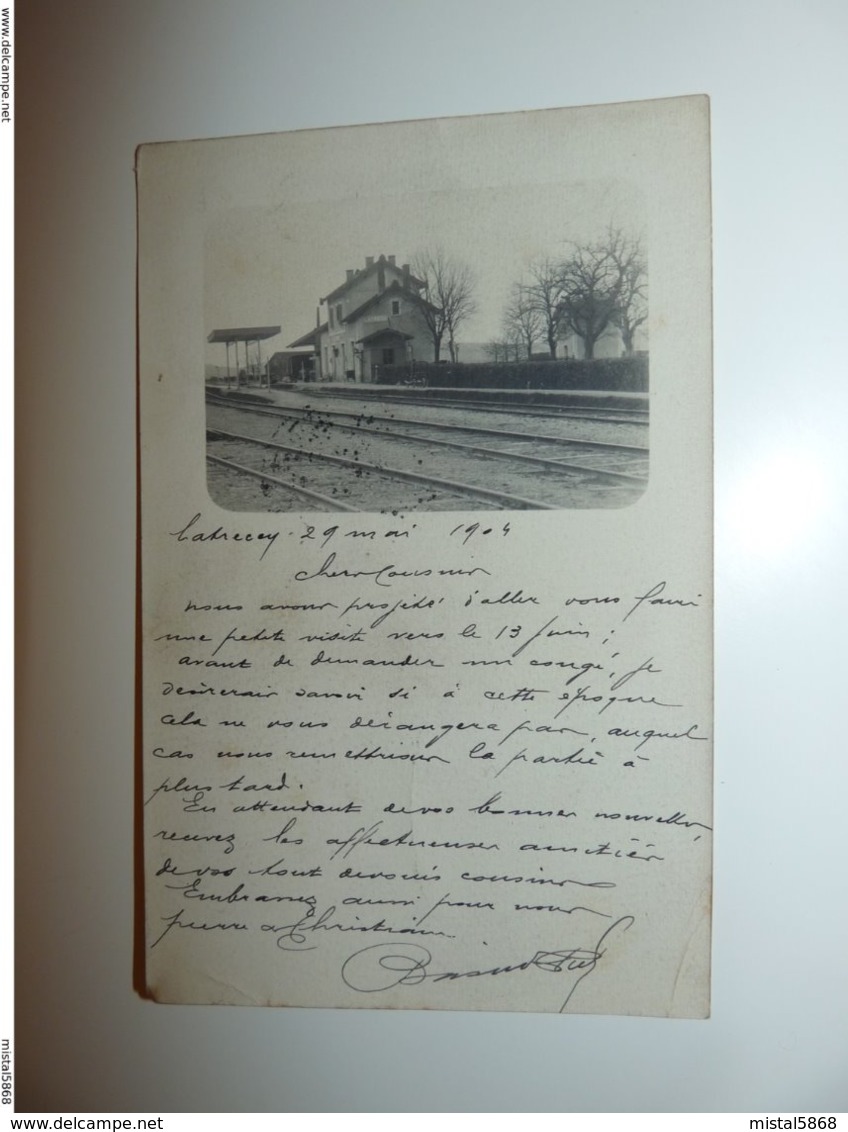 www.delcampe.net
Latrecey 29 mai 1904
Chers Cousins
nous avons projeté d'aller vous faire
une petite visite vers le 13 Juin;
avant de demander mon congé, je
désirerais savoir si à cette époque
cela ne vous dérangera pas, auquel
cas nous remettrions la partie à
plus tard.
En attendant de vos bonnes nouvelles,
recevez les affectueuses amitiés
de vos tout dévoués cousins
Embrassez aussi pour nous
pierre & Christian
mistal5868
www.delcampe.net
mistal5868